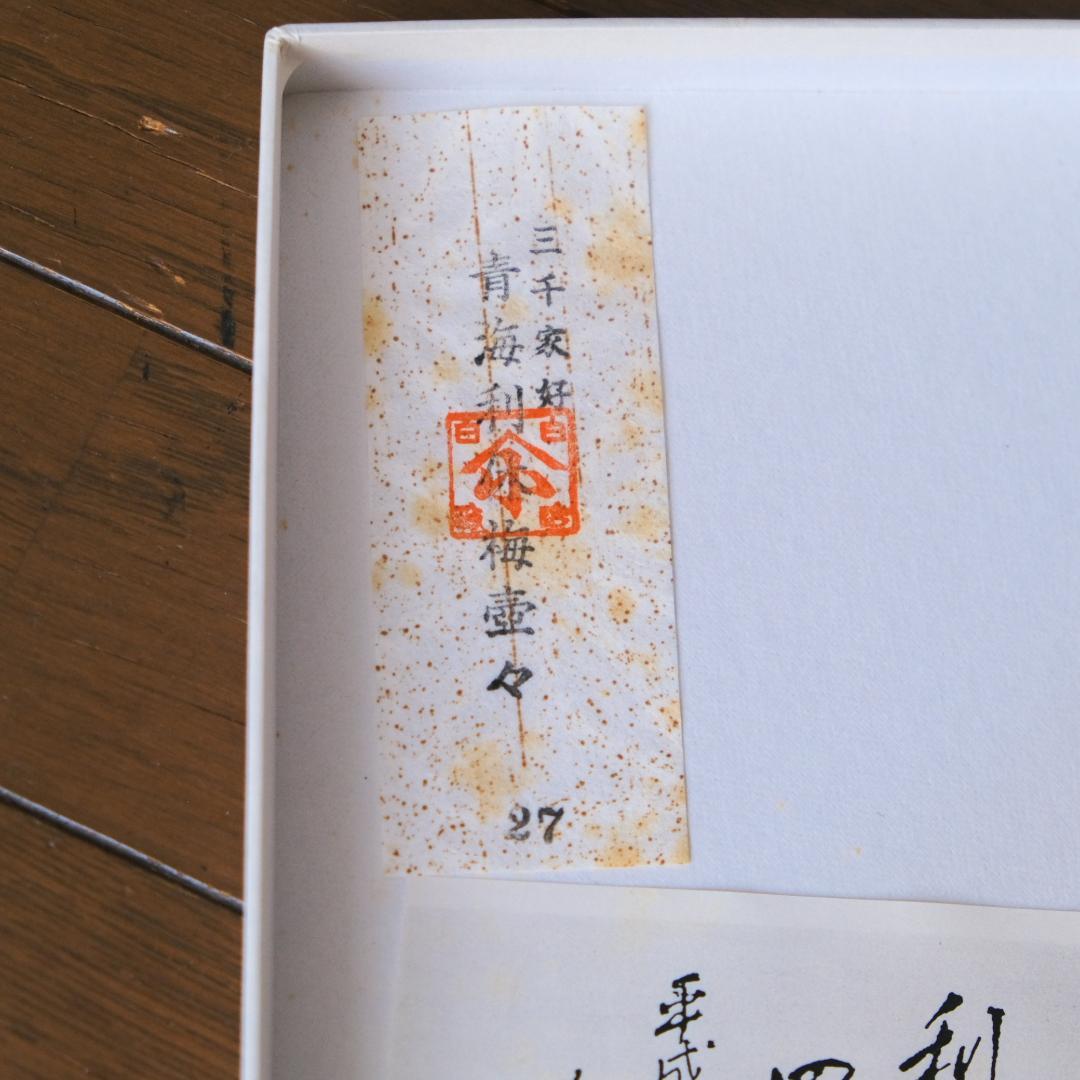 三千家好
青海利休梅壷々
27
利
平成